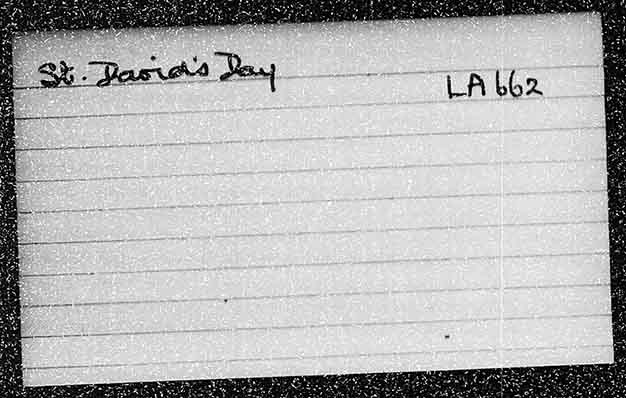 St. David's Day
LA 662